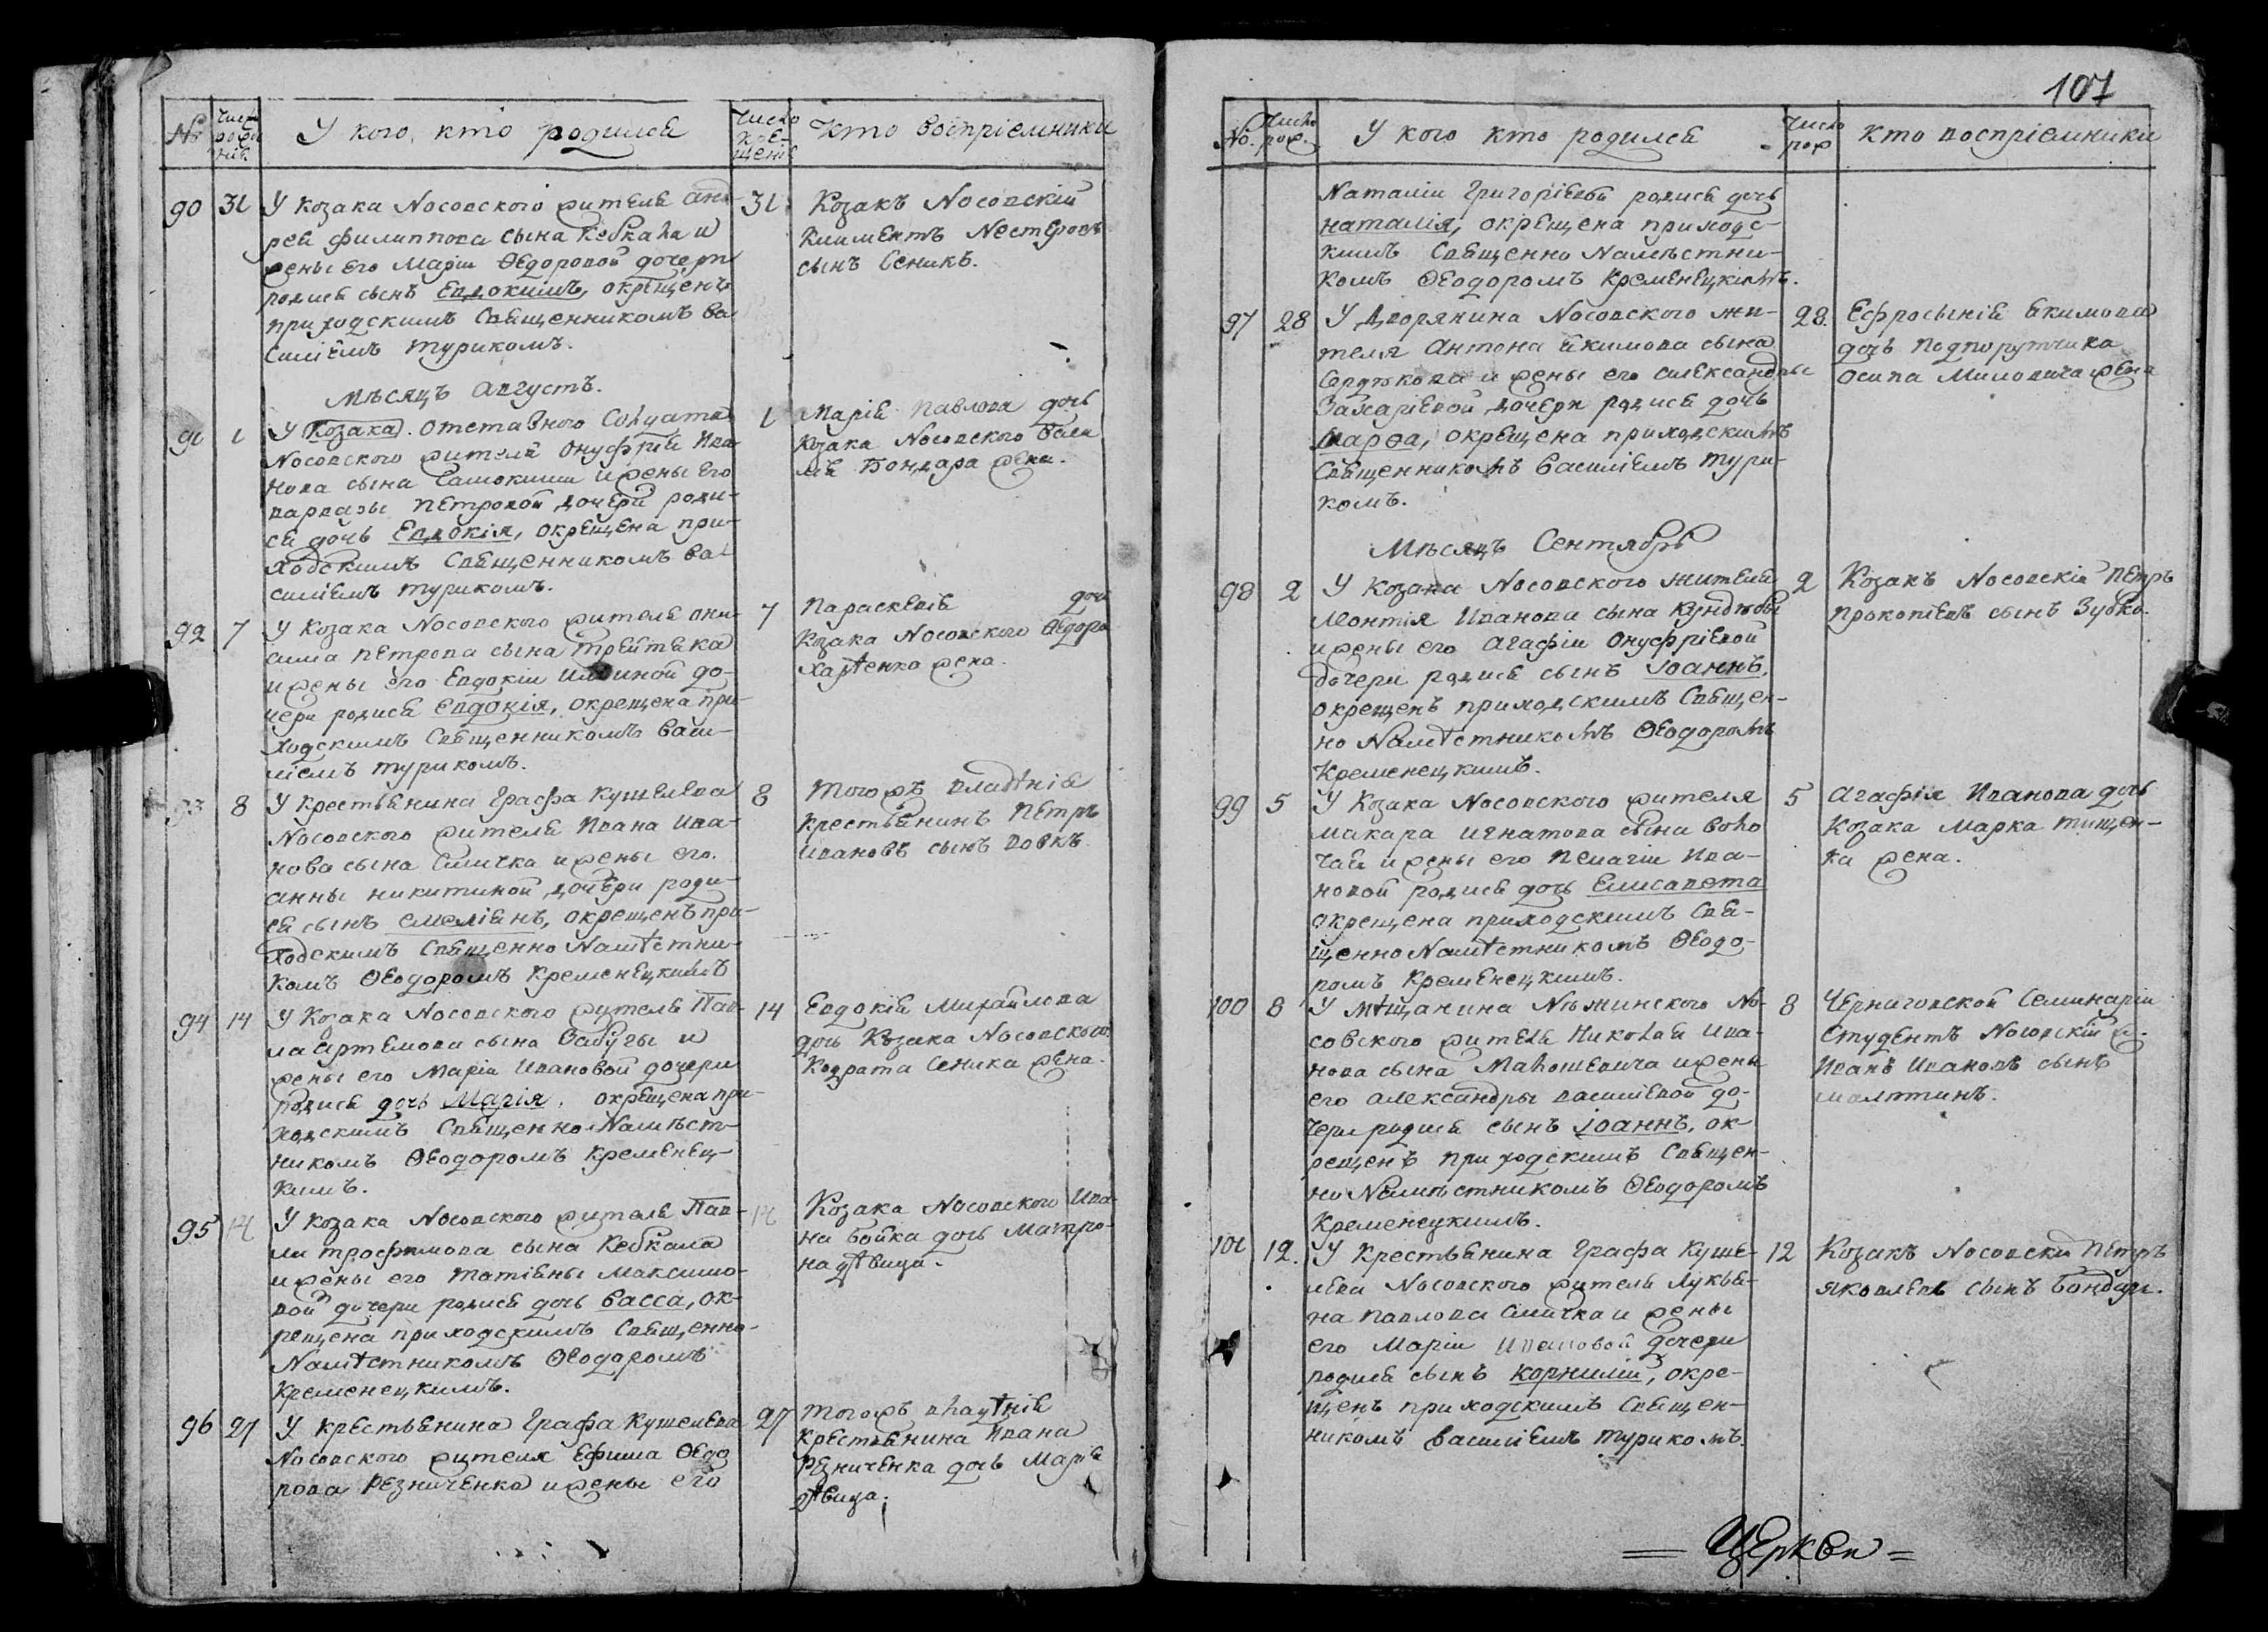 107
№ Число рожденія У кого, кто родился Число крещенія Кто воспріемники
90 31 У козака Носовского жителя Анд-
рея Филиппова сына Кебкала и
жены его Маріи Ѳедоровой дочери
родися сынъ Евдокимъ, окрещенъ
приходскимъ Священникомъ Ва
силіемъ Турикомъ.
31 Козакъ Носовскій
Климентъ Нестеровъ
сынъ Сеникъ.
Мѣсяцъ Августъ.
91 1 У козака отставного Солдата
Носовского жителя Онуфрія Ива
нова сына и жены его
Варвары Петровой дочери роди-
ся дочь Евдокія, окрещена при-
ходскимъ Священникомъ Ва
силіемъ Турикомъ.
1 Марія Павлова дочь
козака Носовского Васи
лія Бондара жена.
92 7 У козака Носовского жителя Они
сима Петрова сына Трейтяка
и жены его Евдокіи Ильиной до-
чери родися Евдокія, окрещена при-
ходскимъ Священникомъ Васи-
ліемъ Турикомъ.
7 Параскевія дочь
Козака Носовского Ѳедора
Харченко жена.
93 8 У крестьянина Графа Кушелева
Носовского жителя Ивана Ива-
нова сына Смичка и жены его
Анны Никитиной дочери роди-
ся сынъ Емеліянъ, окрещенъ при-
ходскимъ Священно Намѣстни-
комъ Ѳеодоромъ Кременецкимъ
8 Тогожъ владѣнія
крестьянинъ Петръ
Ивановъ сынъ Вовкъ
94 14 У козака Носовского жителя Пав-
ла Артемова сына Бабучы и
жены его Маріи Ивановой дочери
родися дочь Марія, окрещена при-
ходскимъ Священно Намѣст-
никомъ Ѳеодоромъ Кременец-
кимъ.
14 Евдокія Михайлова
дочь Козака Носовского
Кодрата Сеника жена.
95 14 У козака Носовского жителя Пав-
ла Трофимова сына Кебкала
и жены его Татіяны Максимо-
вой дочери родися дочь Васса, ок-
рещена приходскимъ Священно-
Намѣстникомъ Ѳеодоромъ
Кременецкимъ.
14 Козака Носовского Ива-
на Бойка дочь Матро-
на дѣвица.
96 27 У крестьянина Графа Кушелева
Носовского жителя Ефима Ѳедо
рова Резниченка и жены его
27 Тогожъ владѣнія
Крестьянина Ивана
Резниченка дочь Марія
дѣвица.
№. Число рож. У кого кто родился Число рож Кто воспріемники
Наталіи Григоріевой родися дочь
Наталія, окрещена приходс-
кимъ Священно Намѣстни-
комъ Ѳеодоромъ Кременецкимъ.
97 28 У Дворянина Носовского жи-
теля Антона Якимова сына
Сердюкова и жены его Александры
Захаріевой дочери родися дочь
Марѳа, окрещена приходскимъ
Священникомъ Василіемъ Тури-
комъ.
28. Ефросынія Якимова
дочь Подпорутчика
Осипа Миловича жена
Мѣсяцъ Сентябрь
98 2 У козака Носовского жителя
Леонтія Иванова сына
и жены его Агафіи Онуфріевой
дочери родися сынъ Іоаннъ,
окрещенъ приходскимъ Священ-
но Намѣстникомъ Ѳеодоромъ
Кременецкимъ.
2 Козакъ Носовскій Петръ
Прокопіевъ сынъ Зубко.
99 5 У козака Носовского жителя
Макара Игнатова сына Воло
чай и жены его Пелагіи Ива-
новой родися дочь Елисавета
окрещена приходскимъ Свя-
щенно Намѣстникомъ Ѳеодо-
ромъ Кременецкимъ.
5 Агафія Иванова дочь
Козака Марка Тищен-
ка жена.
100 8 У мѣщанина Нѣжинского Но-
совского жителя Николая Ива-
нова сына Малошевича и жены
его Александры Василіевой до-
чери родися сынъ Іоаннъ, ок
рещенъ приходскимъ Священ-
но Намѣстникомъ Ѳеодоромъ
Кременецкимъ.
8 Черниговской Семинаріи
Студентъ Носовскій ж.
Иванъ Ивановъ сынъ
101 12. У крестьянина Графа Куше-
лева Носовского жителя Лукья-
на Павлова Смичка и жены
его Маріи Ивановой дочери
родися сынъ Корнилій, окре-
щенъ приходскимъ Священ-
никомъ Василіемъ Турикомъ.
12 Козакъ Носовскій Петръ
Яковлевъ сынъ Бондарь.
= Церкви =